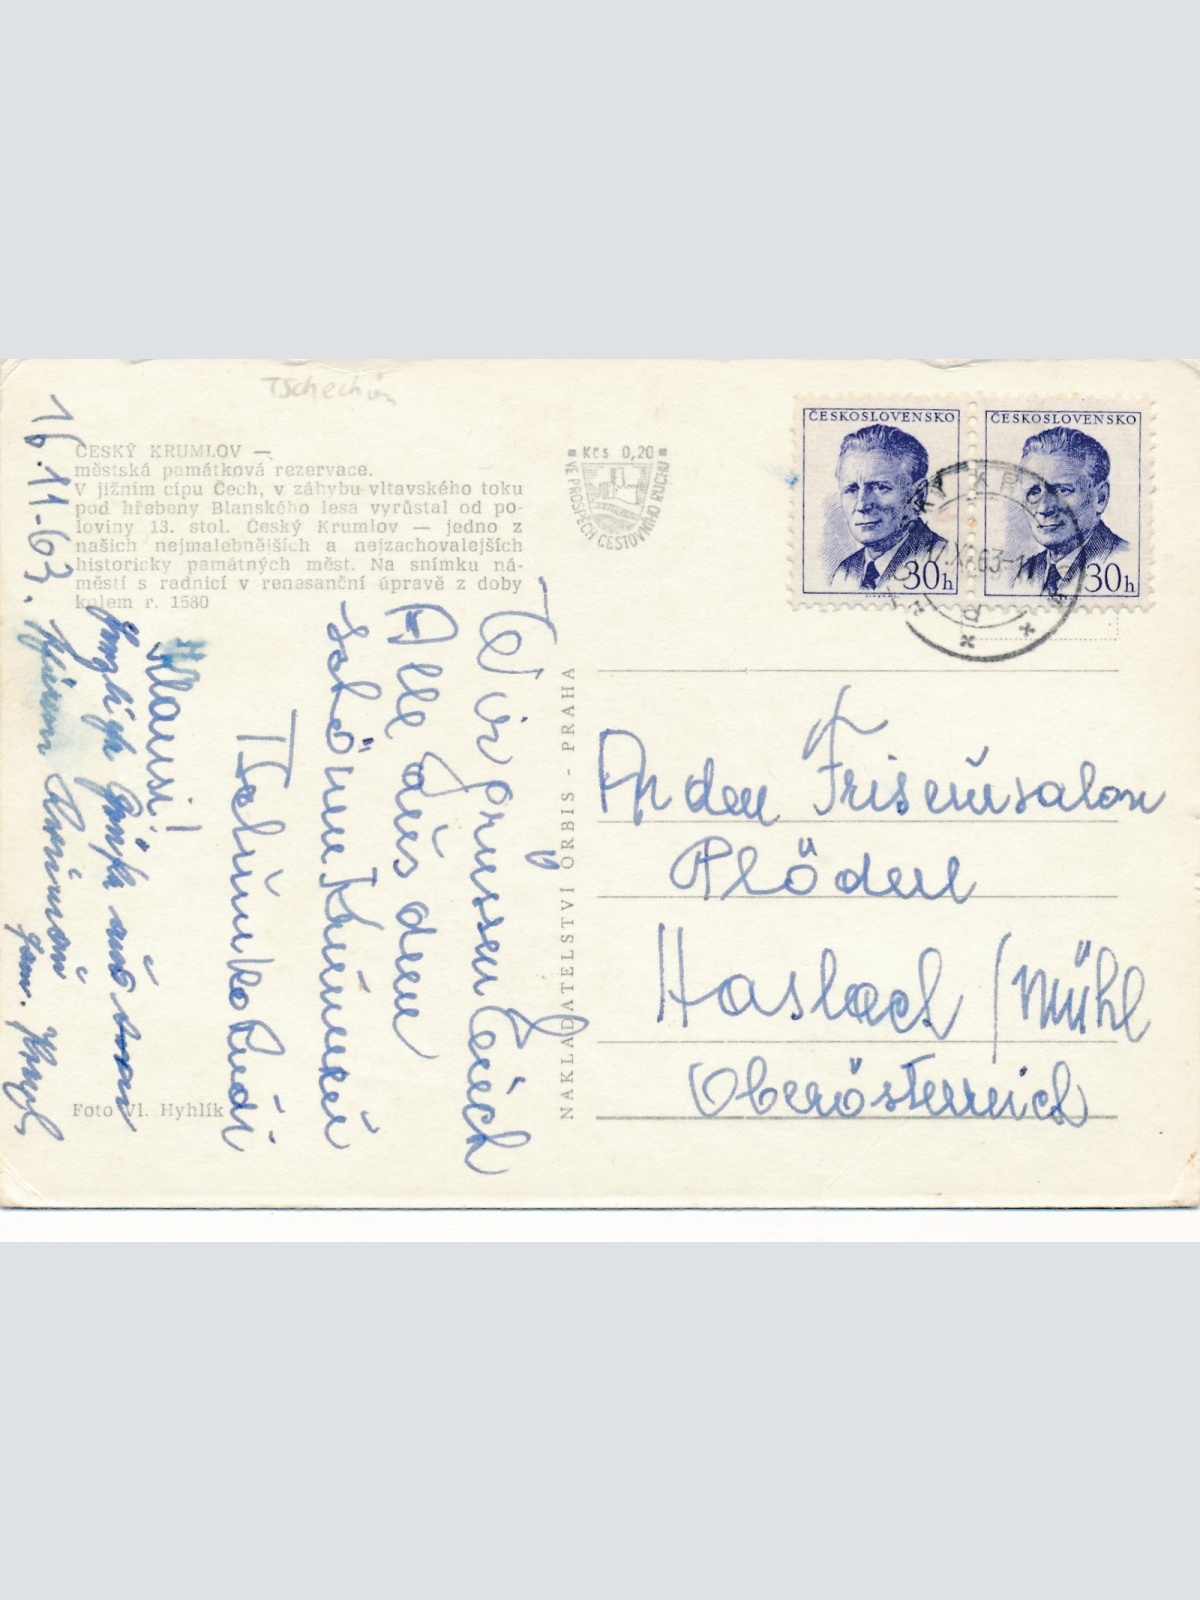 Tschechien
ČESKÝ KRUMLOV —
městská památková rezervace.
V jižním cípu Čech, v záhybu vltavského toku
pod hřebeny Blanského lesa vyrůstal od po-
loviny 13. stol. Český Krumlov — jedno z
našich nejmalebnějších a nejzachovalejších
historicky památných měst. Na snímku ná-
městí s radnicí v renesanční úpravě z doby
kolem r. 1580
Foto Vl. Hyhlík
Kčs 0,20
VE PROSPĚCH CESTOVNÍHO RUCHU
NAKLADATELSTVÍ ORBIS - PRAHA
ČESKOSLOVENSKO
30h
ČESKOSLOVENSKO
30h
ČESKÝ KRUMLOV
63-11
16.11-63.
Wir grüssen Eüch
Alle aüs dem
schönen
Rudi
Klausi!
An den Friseursalon
Plöderl
Haslach / Mühl
Oberösterreich